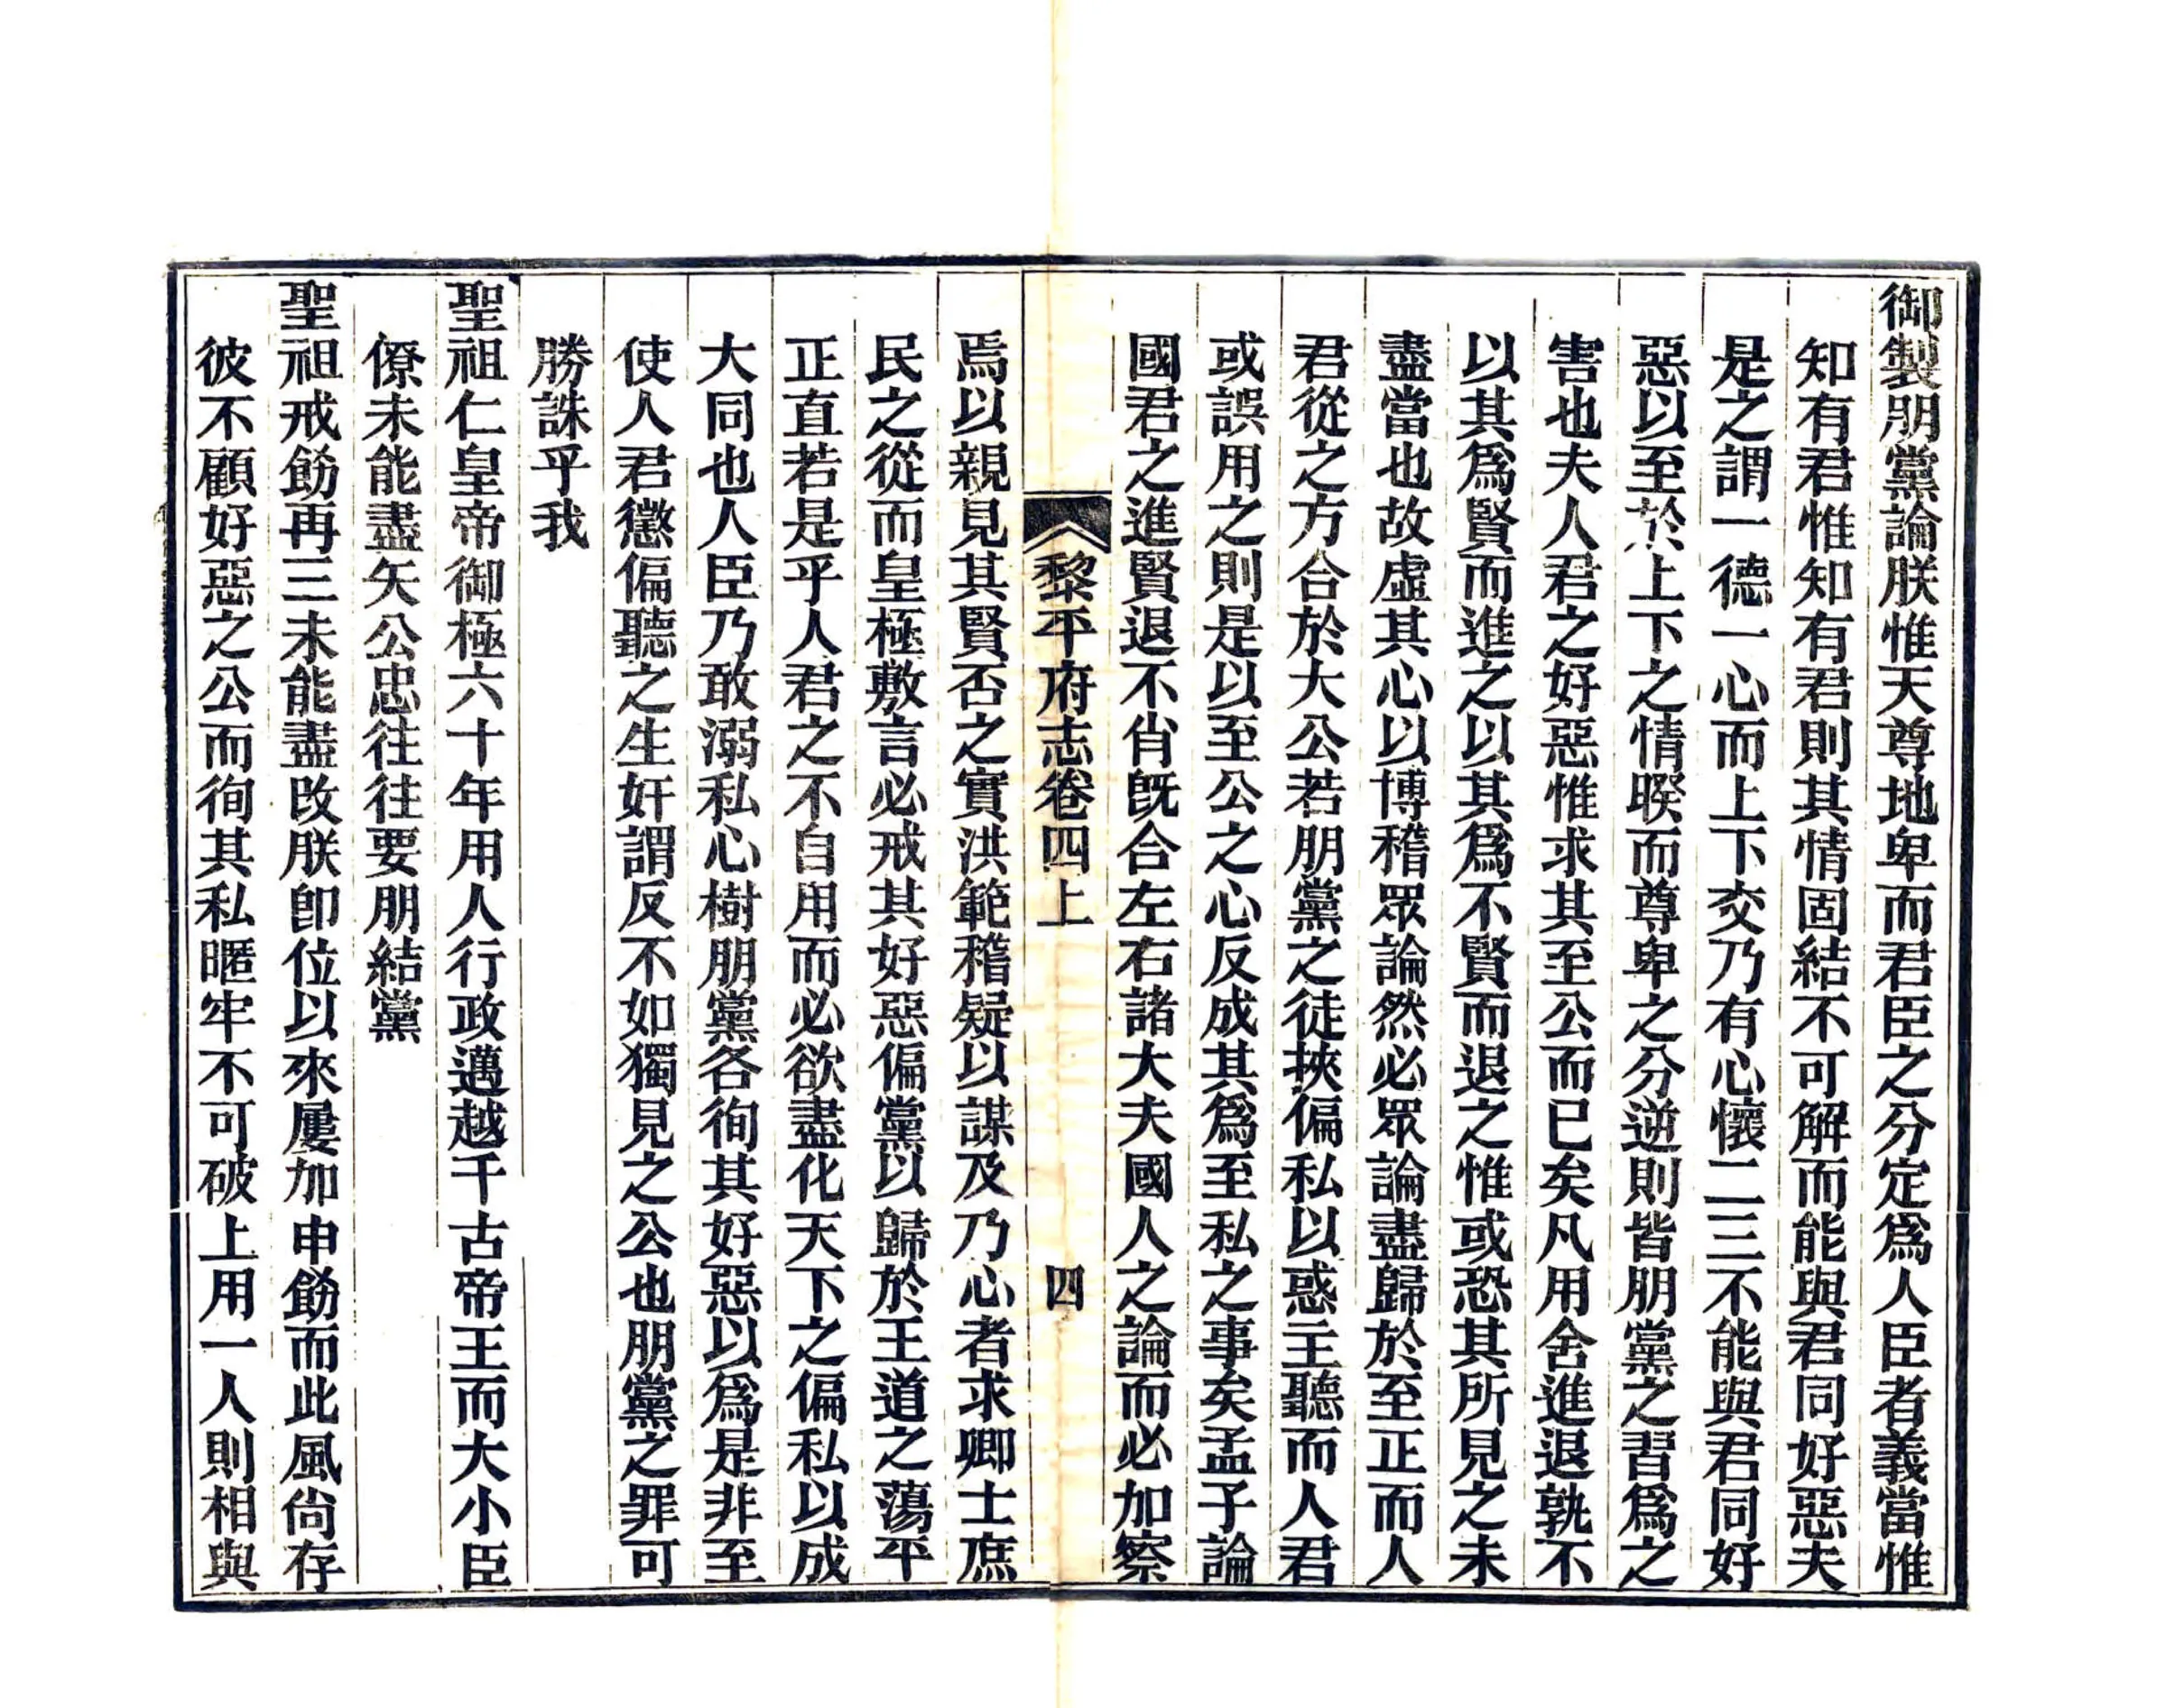 御製朋黨論朕惟天尊地卑而君臣之分定爲人臣者義當惟
知有君惟知有君則其情固結不可解而能與君同好惡夫
是之謂一德一心而上下交乃有心懷二三不能與君同好
惡以至於上下之情暌而尊卑之分逆則皆朋黨之習爲之
害也夫人君之好惡惟求其至公而已矣凡用舍進退孰不
以其爲賢而進之以其爲不賢而退之惟或恐其所見之未
盡當也故虛其心以博稽眾論然必眾論盡歸於至正而人
君從之方合於大公若朋黨之徒挾偏私以惑主聽而人君
或誤用之則是以至公之心反成其爲至私之事矣孟子論
國君之進賢退不肖旣合左右諸大夫國人之論而必加察
黎平府志卷四上 四
焉以親見其賢否之實洪範稽疑以謀及乃心者求卿士庶
民之從而皇極敷言必戒其好惡偏黨以歸於王道之蕩平
正直若是乎人君之不自用而必欲盡化天下之偏私以成
大同也人臣乃敢溺私心樹朋黨各徇其好惡以爲是非至
使人君懲偏聽之生奸謂反不如獨見之公也朋黨之罪可
勝誅乎我
聖祖仁皇帝御極六十年用人行政邁越千古帝王而大小臣
僚未能盡矢公忠往往要朋結黨
聖祖戒飭再三未能盡改朕卽位以來屢加申飭而此風尙存
彼不顧好惡之公而徇其私暱牢不可破上用一人則相與